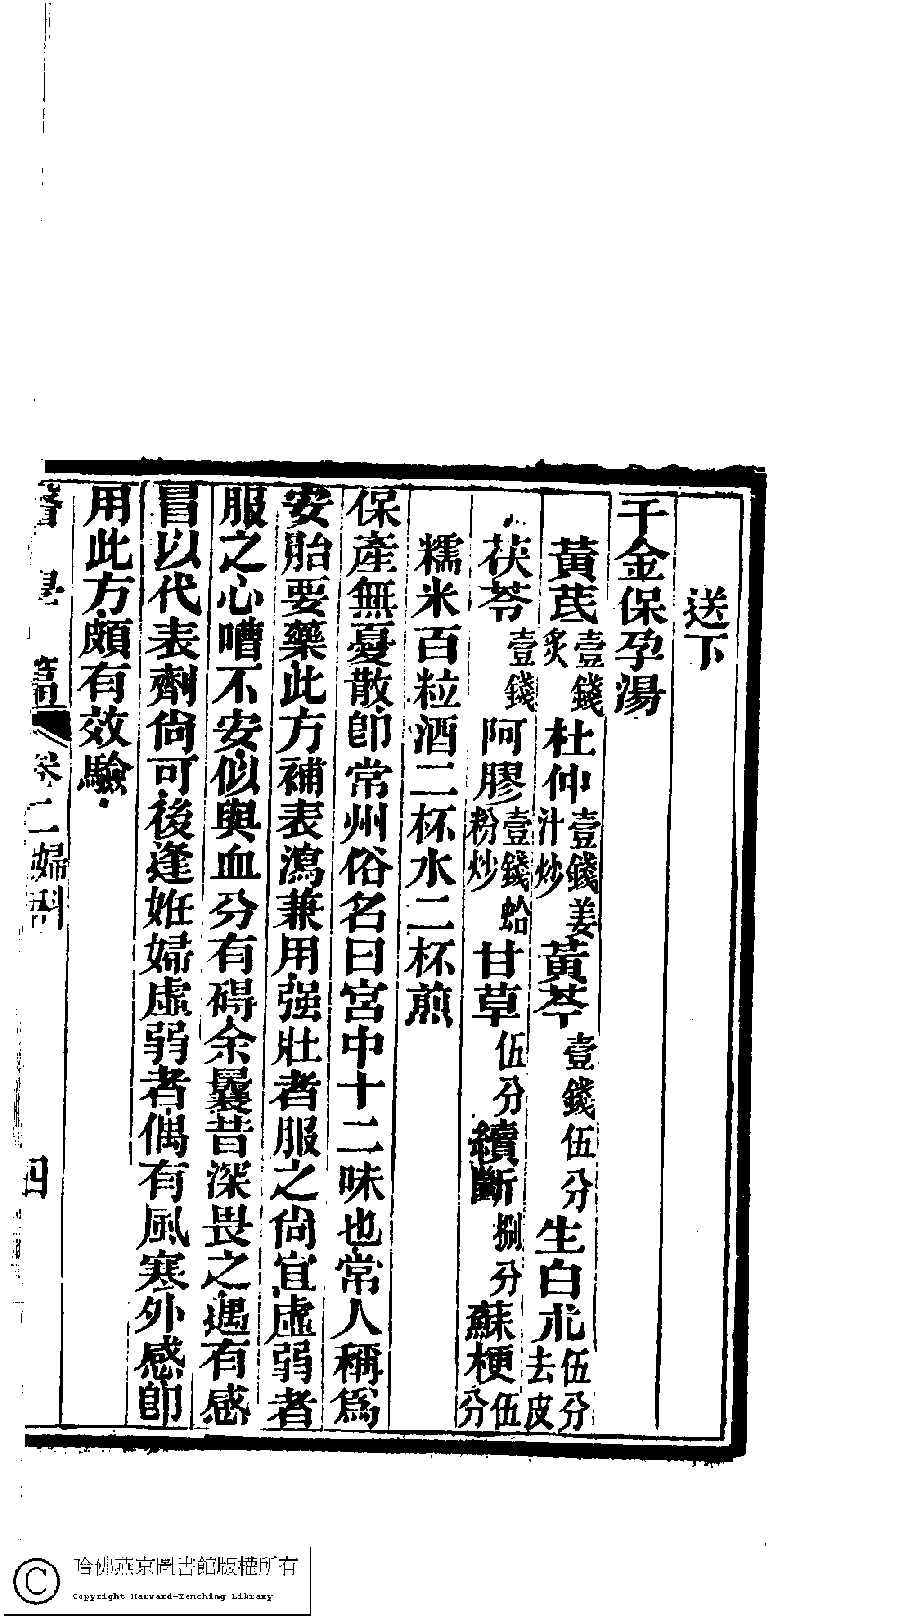 送下
千金保孕湯
黃芪壹錢炙杜仲壹錢姜汁炒黃芩壹錢伍分生白朮伍分去皮
茯苓壹錢阿膠壹錢蛤粉炒甘草伍分續斷捌分蘇梗伍分
糯米百粒酒二杯水二杯煎
保產無憂散卽常州俗名曰宮中十二味也常人稱爲
安胎要藥此方補表瀉兼用强壯者服之尙宜虛弱者
服之心嘈不安似與血分有碍余曩昔深畏之遇有感
冒以代表劑尙可後逢姙婦虛弱者偶有風寒外感卽
用此方頗有效驗
篇 卷二婦科 四
哈佛燕京圖書館版權所有
Copyright Harvard-Yenching Library